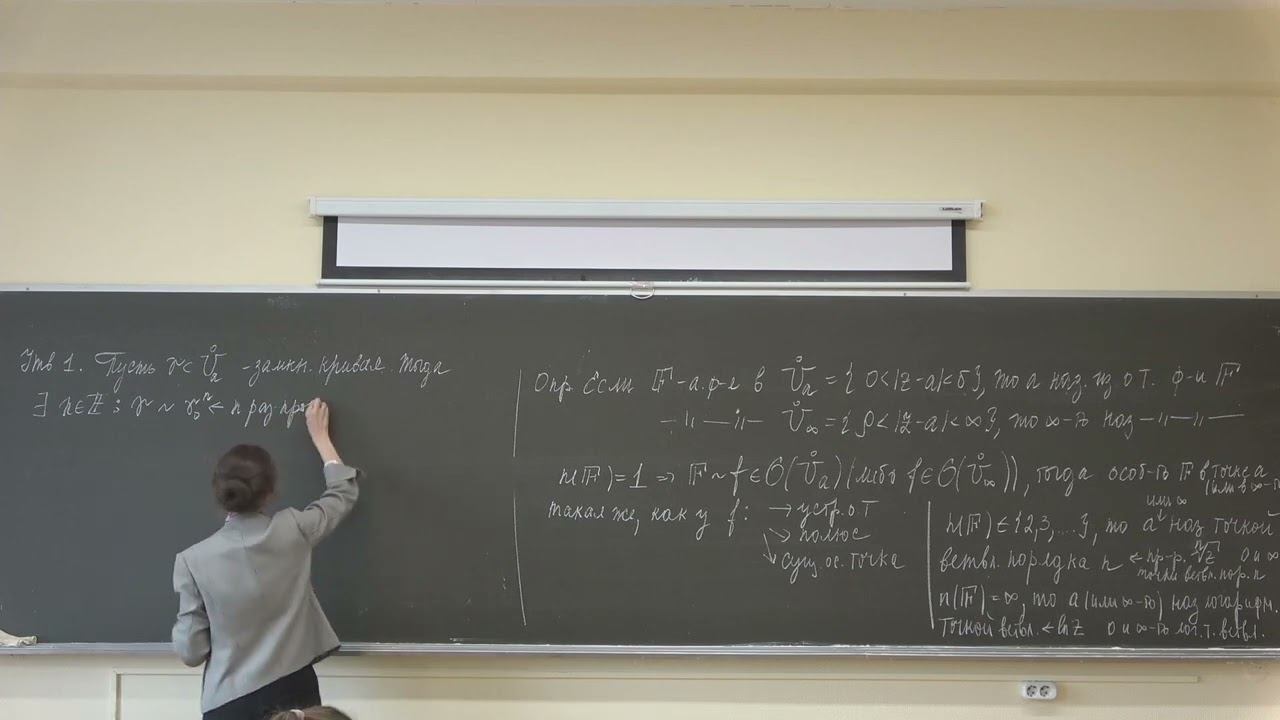 Утв 1. Пусть γ ⊂ V̊ₐ - замкн. кривая. Тогда
∃ n∈ℤ : γ ~ γ₀ⁿ ← n раз про
Опр. Если 𝔽-а.ф-я в V̊ₐ = { 0<|z-a|<δ}, то a наз. из о.т. ф-и 𝔽
—〃——〃— V̊∞ = { ρ<|z-a|<∞}, то ∞-ть наз —〃—〃—
n(𝔽)=1 ⇒ 𝔽 ~ f ∈ O(V̊ₐ) (либо f ∈ O(V̊∞)), тогда особ-ть 𝔽 в точке a
(или в ∞-
такая же, как у f: → устр. о.т
↘ полюс
↘ сущ. ос. точка
или ∞
n(𝔽) ∈ {2,3,...}, то a наз точкой
ветвл. порядка n ← пр-р. ⁿ√z 0 и ∞
точки ветвл. пор. n
n(𝔽) = ∞, то a (или ∞-ть) наз логарифм.
точкой ветвл. ← ln z 0 и ∞-ть лог. т. ветвл.